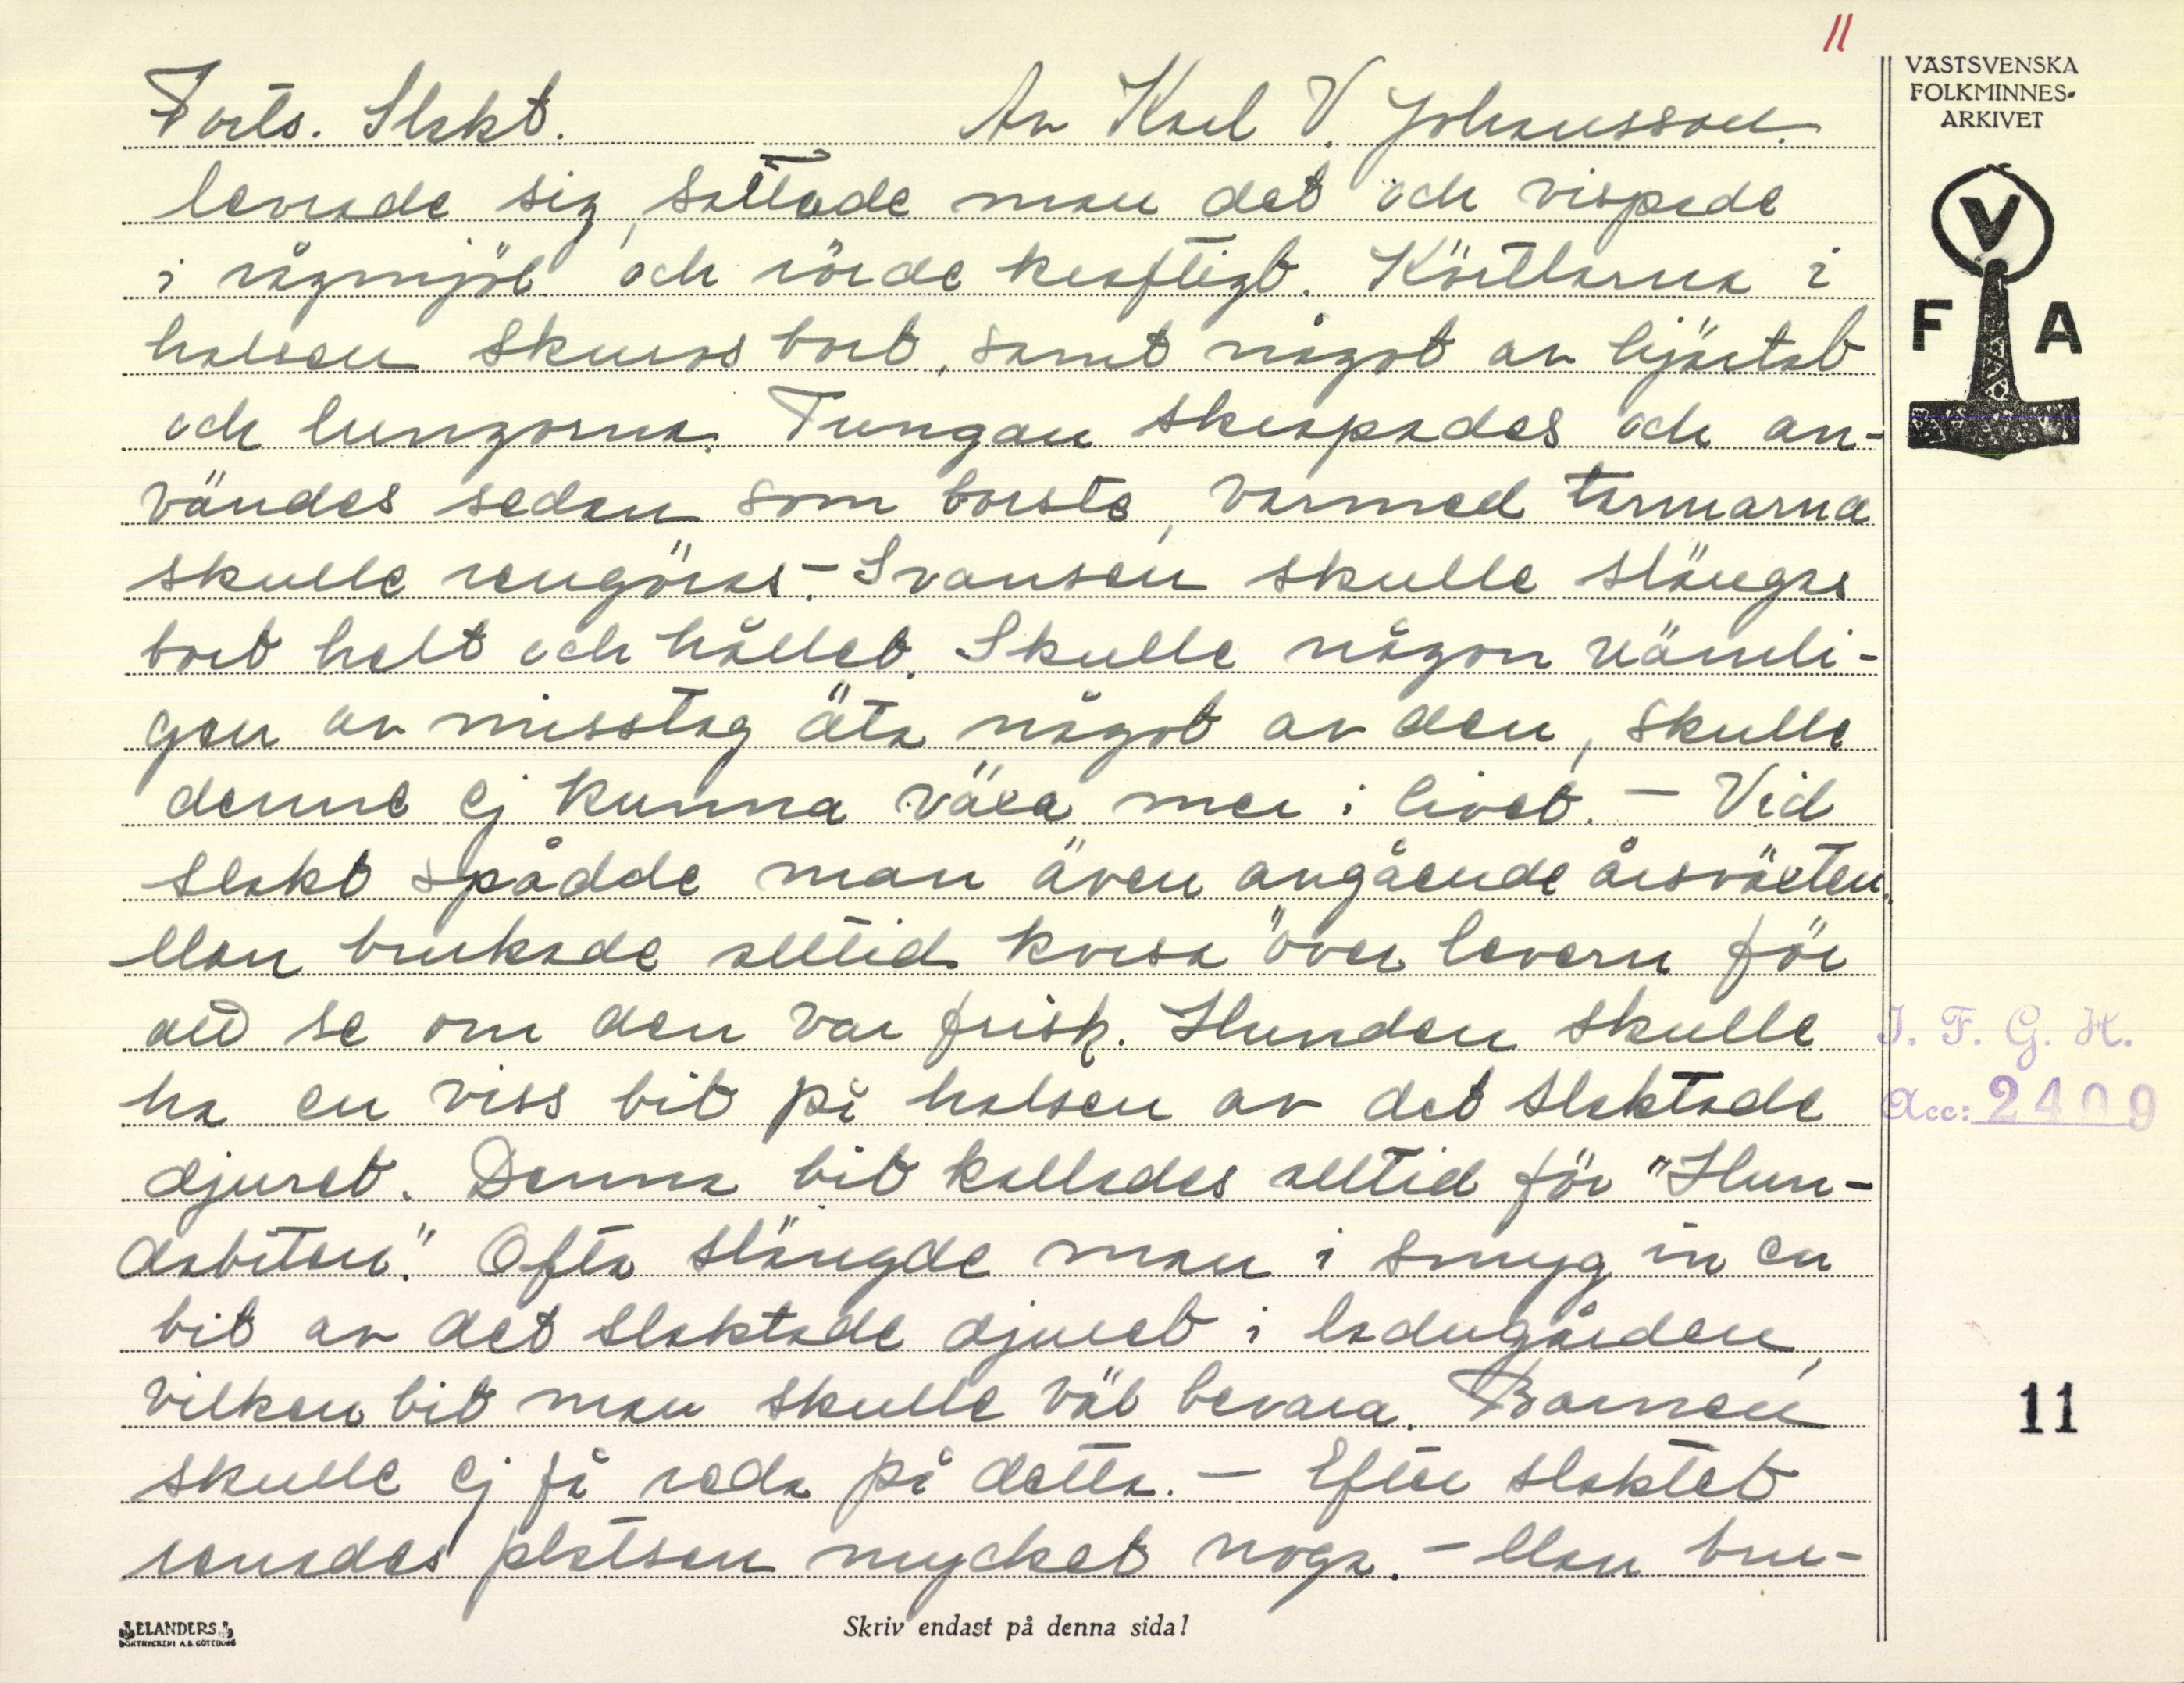 11
VÄSTSVENSKA
FOLKMINNES-
ARKIVET
V
F A
Forts. Slakt. Av Karl V. Johansson.
levrade sig, saltade man det och vispade
i rågmjöl och rörde kraftigt. Körtlarna i
halsen skuros bort, samt något av hjärtat
och lungorna. Tungan skrapades och an-
vändes sedan som borste, varmed tarmarna
skulle rengöras. - Svansen skulle slängas
bort helt och hållet. Skulle någon nämli-
gen av misstag äta något av den, skulle
denne ej kunna växa mer i livet. - Vid
slakt spådde man även angående årsväxten.
Man brukade alltid korsa över levern för
att se om den var frisk. Hunden skulle
ha en viss bit på halsen av det slaktade
djuret. Denna bit kallades alltid för "Hun-
dabiten." Ofta slängde man i smyg in en
bit av det slaktade djuret i ladugården,
vilken bit man skulle väl bevara. Barnen
skulle ej få reda på detta. - Efter slaktet
renades platsen mycket noga. - Man bru-
I. F. G. H.
Acc: 2409
11
ELANDERS
BOKTRYCKERI A.B. GÖTEBORG
Skriv endast på denna sida!